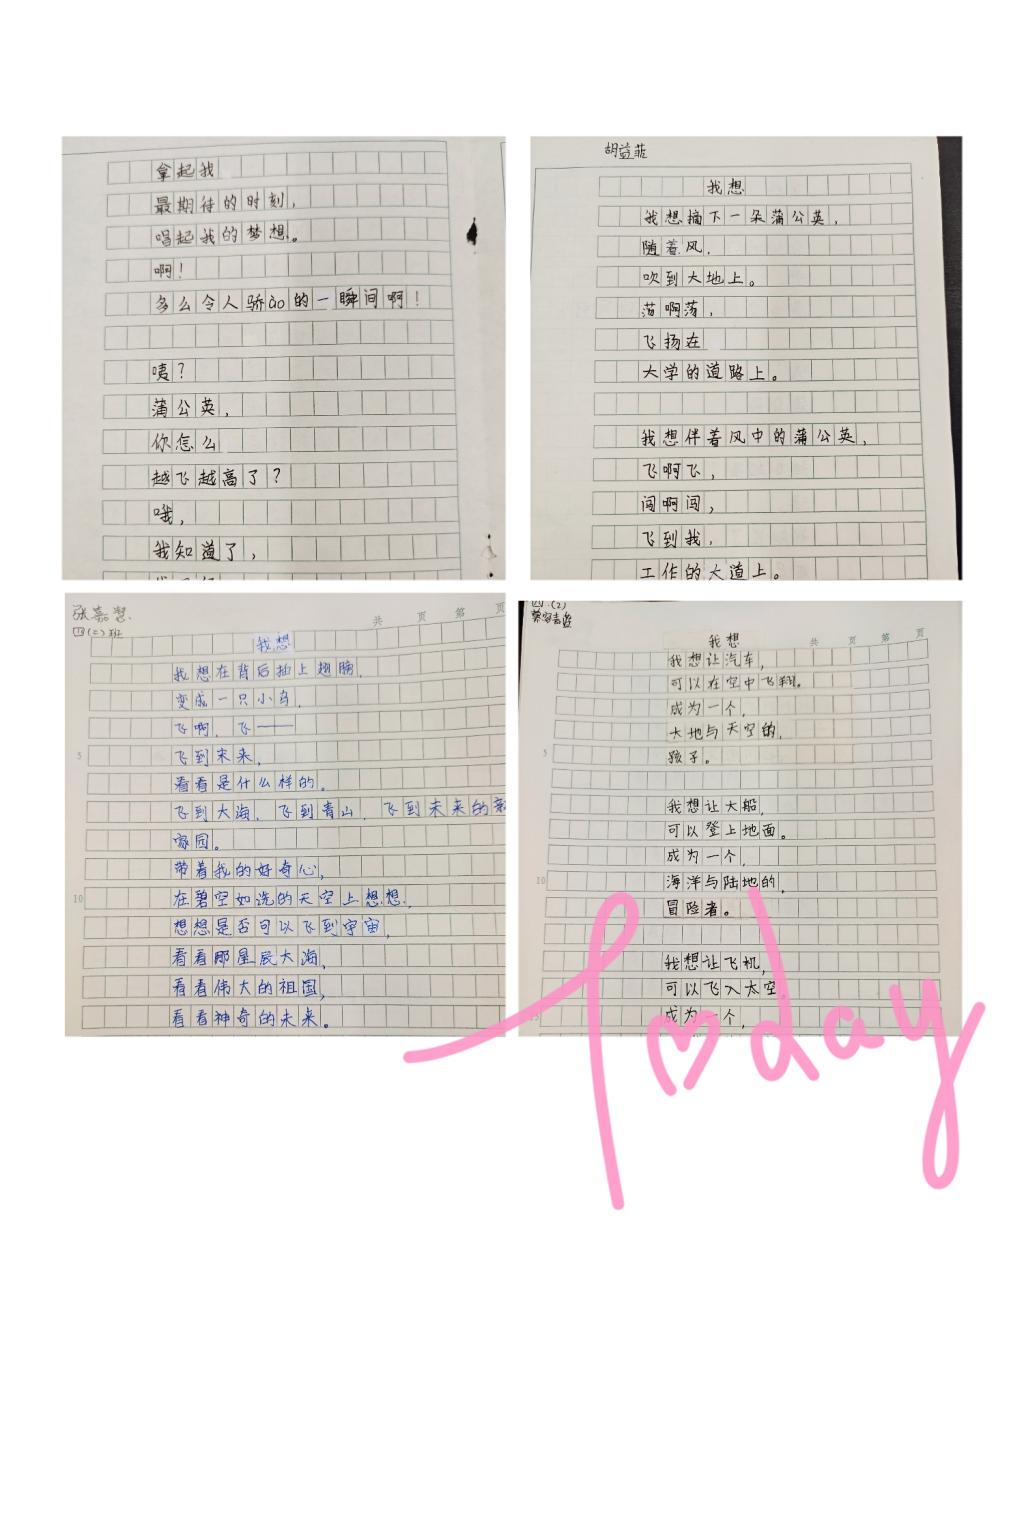 拿起我
最期待的时刻，
唱起我的梦想。
啊！
多么令人骄ào的一瞬间啊！
咦？
蒲公英，
你怎么
越飞越高了？
哦，
我知道了，
胡益菲
我想
我想摘下一朵蒲公英，
随着风，
吹到大地上。
荡啊荡，
飞扬在
大学的道路上。
我想伴着风中的蒲公英，
飞啊飞，
闯啊闯，
飞到我，
工作的大道上。
张嘉
四(二)班
共 页 第 页
我想
我想在背后插上翅膀，
变成一只小鸟，
飞啊，飞——
5 飞到未来，
看看是什么样的。
飞到大海，飞到青山，飞到未来的新
家园。
带着我的好奇心，
10 在碧空如洗的天空上想想，
想想是否可以飞到宇宙，
看看那星辰大海，
看看伟大的祖国，
看看神奇的未来。
四(2)
共 页 第 页
我想
我想让汽车，
可以在空中飞翔。
成为一个，
大地与天空的，
5 孩子。
我想让大船，
可以登上地面。
成为一个，
10 海洋与陆地的，
冒险者。
我想让飞机，
可以飞入太空。
成为一个，
Today